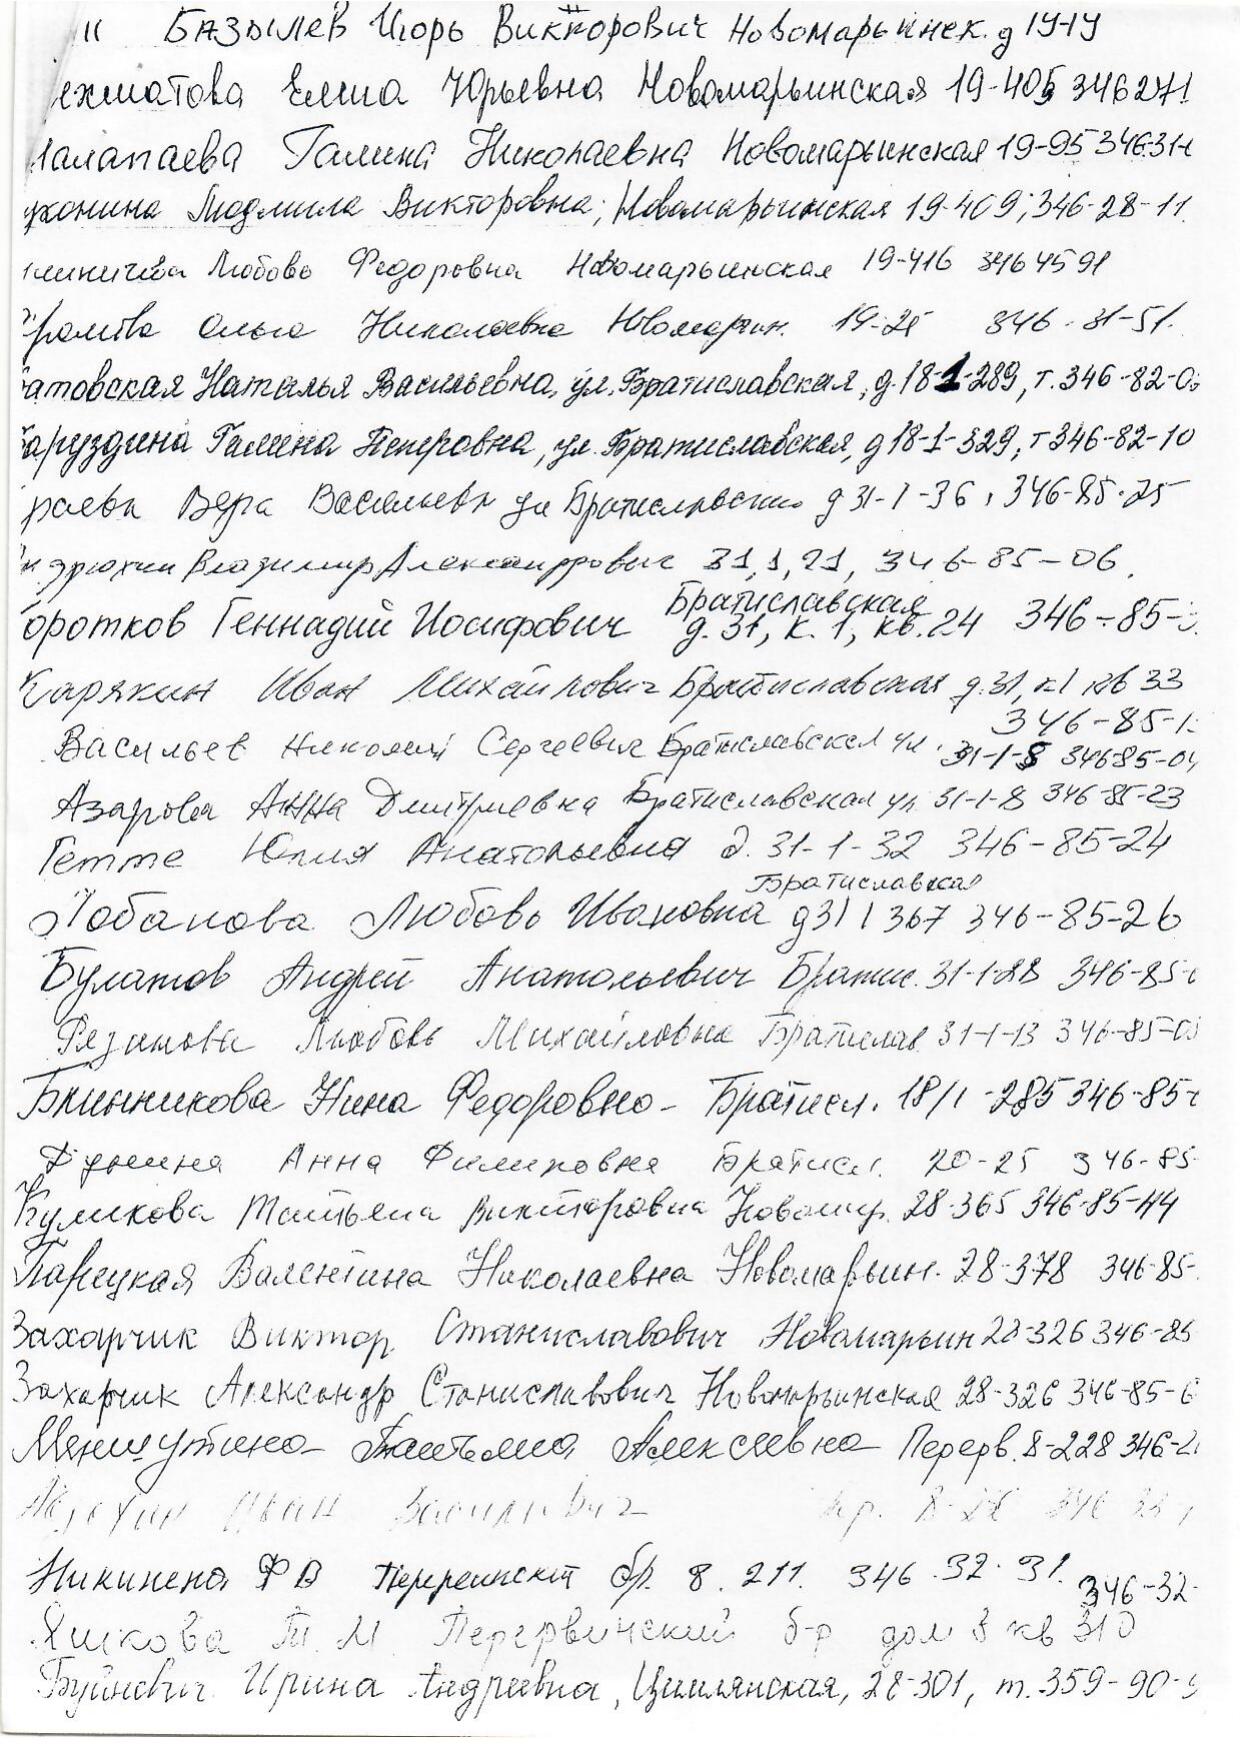 " Базылев Игорь Викторович Новомарьинск. д 19-19
ехматова Елена Юрьевна Новомарьинская 19-405 346271
лалапаева Галина Николаевна Новомарьинская 19-95 346-31-
ухонина Людмила Викторовна, Новомарьинская 19-409, 346-28-11.
Любовь Федоровна Новомарьинская 19-416 3464591
Ольга Николаевна Новомарьин. 19-25 346-31-51.
атовская Наталья Васильевна, ул. Братиславская, д. 18-1-289, т. 346-82-0
аруздина Галина Петровна, ул. Братиславская, д 18-1-329, т 346-82-10
раева Вера Васильевн ул Братиславская д 31-1-36, 346-85-25
Владимир Александрович 31, 1, 21, 346-85-06.
оротков Геннадий Иосифович Братиславская
д. 31, к. 1, кв. 24 346-85-
Карякин Иван Михайлович Братиславская д. 31, к1 кв 33
346-85-1
Васильев Николай Сергеевич Братиславская ул. 31-1-8 346-85-04
Азарова Анна Дмитриевна Братиславская ул 31-1-8 346-85-23
Гетте Юлия Анатольевна д. 31-1-32 346-85-24
Братиславская
Лобанова Любовь Ивановна д 31 1 367 346-85-26
Булатов Андрей Анатольевич Братис. 31-1-28 346-85-
Рязанова Любовь Михайловна Братислав 31-1-13 346-85-03
Блинникова Нина Федоровна - Братисл. 18/1-285 346-85-
Дунина Анна Филиповна Братисл. 20-25 346-85-
Куликова Татьяна Викторовна Новомар. 28-365 346-85-44
Парецкая Валентина Николаевна Новомарьин. 28-378 346-85-
Захарчик Виктор Станиславович Новомарьин 28-326 346-85
Захарчик Александр Станиславович Новомарьинская 28-326 346-85-6
Меншутина Татьяна Алексеевна Перерв. 8-228 346-2
Иван Васильевич
Никинена Ф В бр. 8. 211. 346.32.31.
346-32-
Яшкова Т. М Перервинский б-р дом 8 кв 310
Буйневич Ирина Андреевна, Цимлянская, 28-301, т. 359-90-